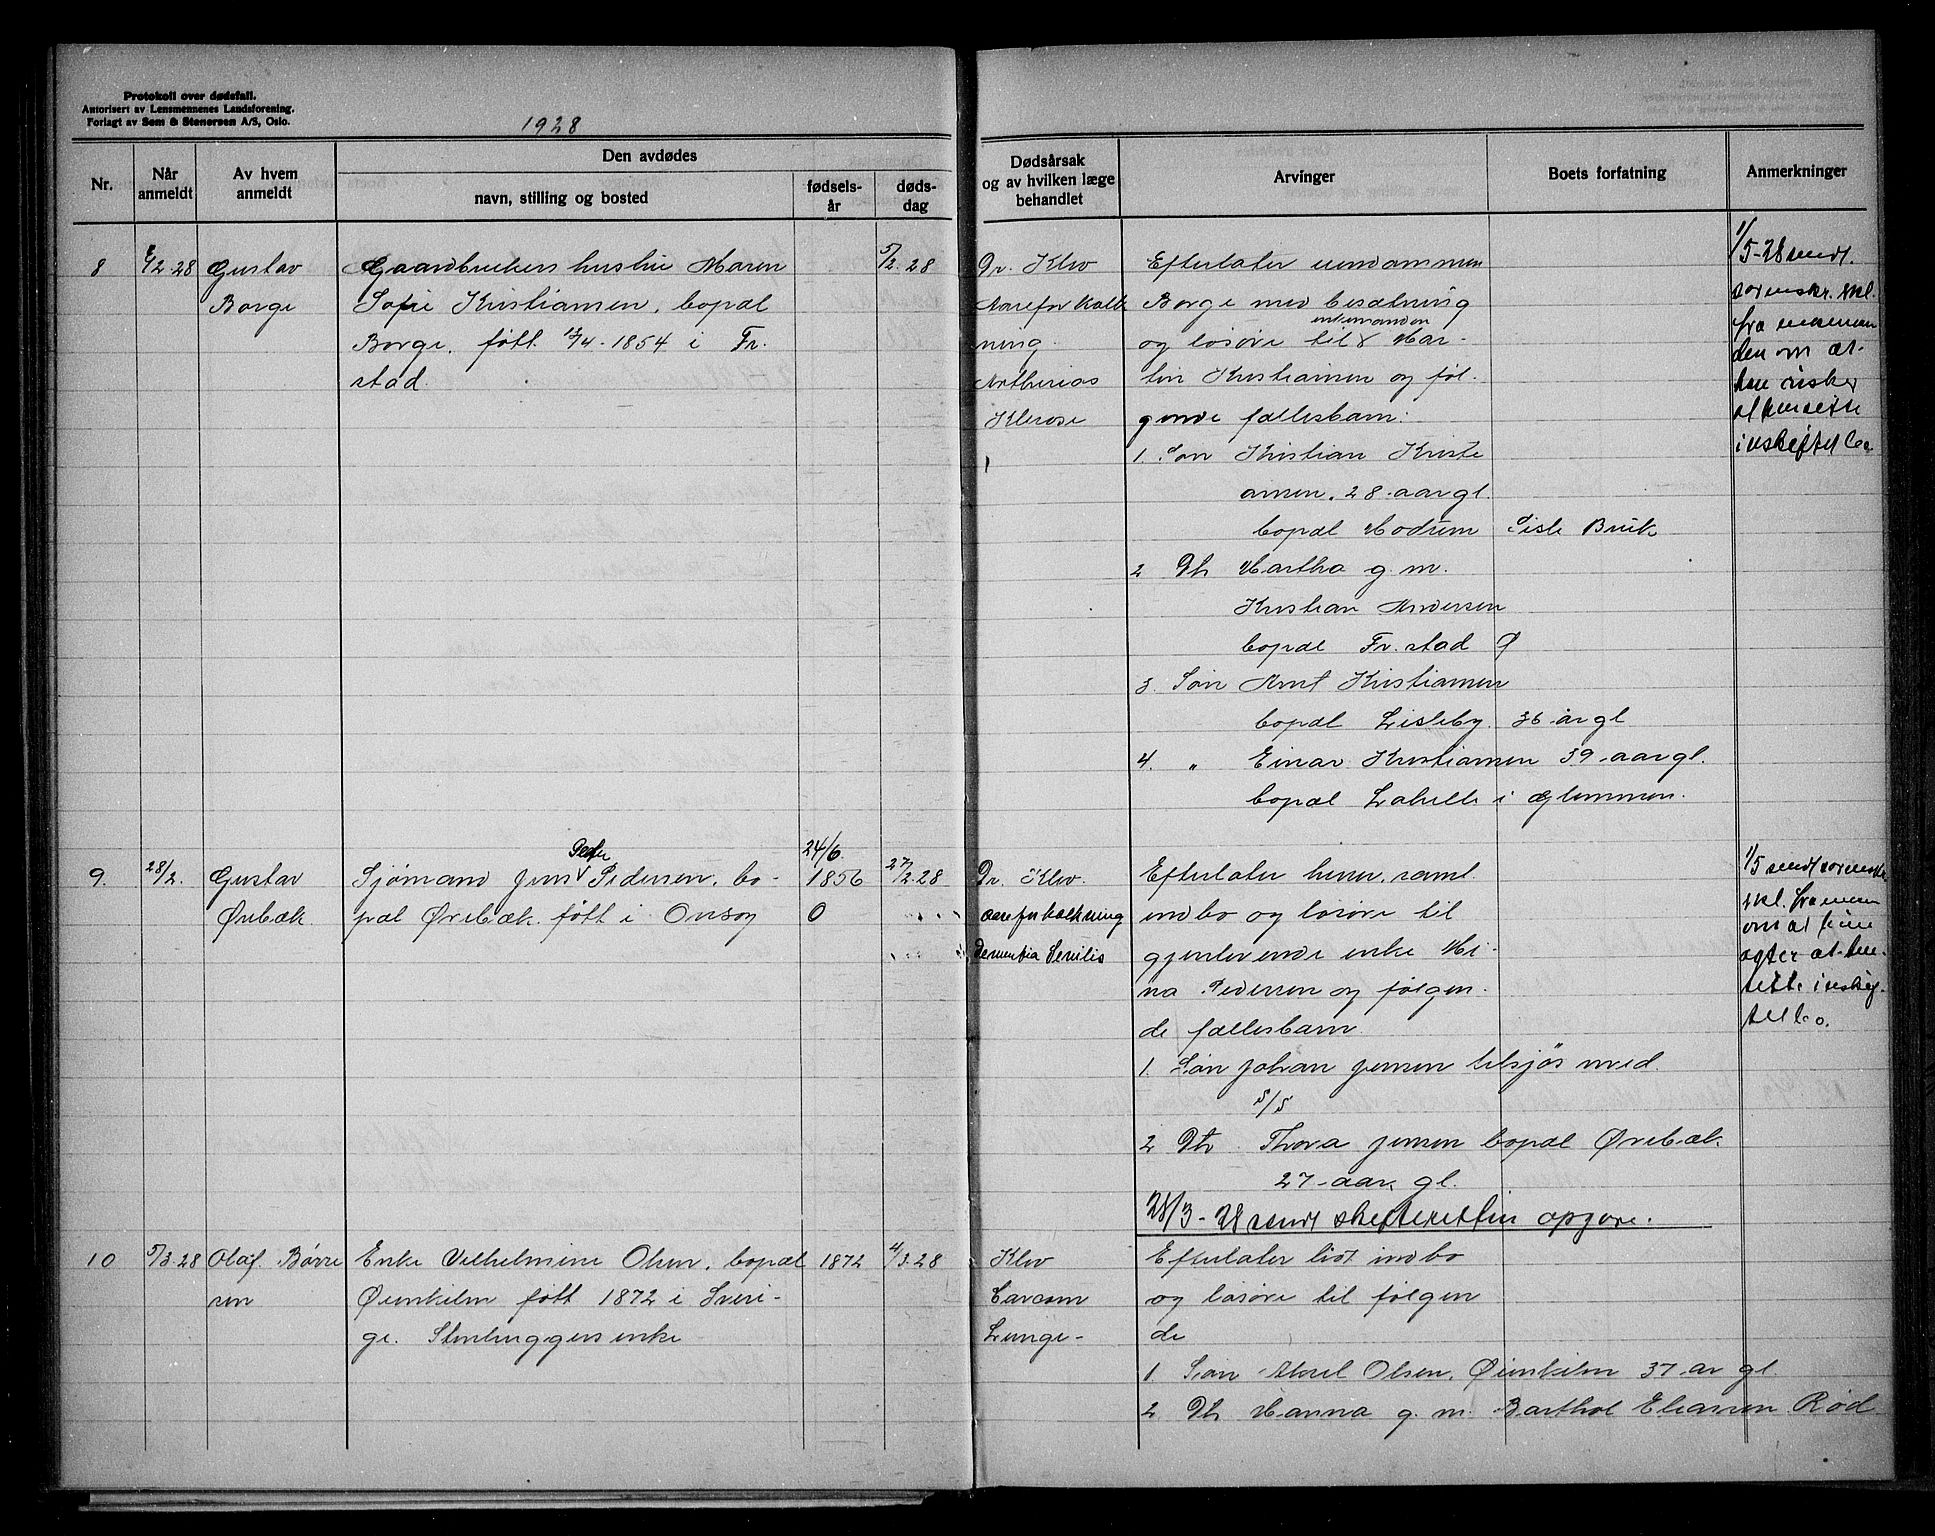 Protokoll over dødsfall.
Autorisert av Lensmennenes Landsforening.
Forlagt av Sem & Stenersen A/S, Oslo.
1928
Nr.
Når anmeldt
Av hvem anmeldt
Den avdødes
navn, stilling og bosted
fødsels-år
døds-dag
Dødsårsak og av hvilken læge behandlet
Arvinger
Boets forfatning
Anmerkninger
8
6/2 28
Gustav
Borge
Gaardbrukers hustru Maren
Sofie Kristiansen, bopæl
Borge, født 13/4-1854 i Fr.
stad.
5/2.28
Dr. Klev
Aareforkalk
ning.
Artherios
Klerose
Efterlater
Borge med besætning
enkemanden
og løsøre til Mar-
tin Kristiansen og føl-
gende fællesbarn:
1. Søn Kristian Kristi
ansen. 28 aar gl.
bopæl Modum Bruk
2 Dtr Martha g.m.
Kristian Andersen
bopæl Fr.stad Ø
3. Søn Arnt Kristiansen
bopæl Lisleby. 36 år gl
4. „ Einar Kristiansen 39 aar gl.
bopæl i Glemmen.
1/5-28 sendt
sorenskr. skl.
fra enkeman
den om at
han ønsker
at hensitte
i uskiftet bo
9.
28/2.
Gustav
Ørebæk
Peder
Sjømand Jens Pedersen, bo-
pæl Ørebæk født i Onsøy
24/6.
1856
0
27/2.28
Dr. Klev.
aareforkalkning
Dementia Senilis
Efterlater samt
indbo og løsøre til
gjenlevende enke Mi-
na Pedersen og følgen-
de fællesbarn
1. Søn Johan Jensen tilsjøs med
s/s
2 Dtr. Thora Jensen bopæl Ørebæk.
27 aar gl.
28/3-28 sendt skifteretten opgjøre.
1/5 sendt sorenskr.
skl. fra enken
om at hun
agter at hen-
sitte i uskif-
tet bo.
10
5/3.28
Olaf. Børre
sen
Enke Vilhelmine Olsen, bopæl
Øienkiln født 1872 i Sveri-
ge. Stenhuggers enke
1872
4/3.28
Klev
Carcom
Lunge-
Efterlater lidt indbo
og løsøre til følgen
de
1 Søn Axel Olsen, Øienkiln 37 ar gl.
2 Dtr Hanna g.m. Barthol Eliassen Rød